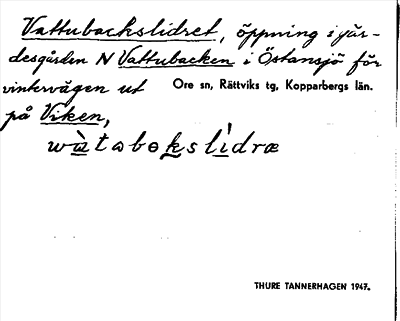 Vattubackslidret, öppning i gär-
desgården N Vattubacken i Östansjö för
vintervägen ut Ore sn, Rättviks tg, Kopparbergs län.
på Viken,
THURE TANNERHAGEN 1947.